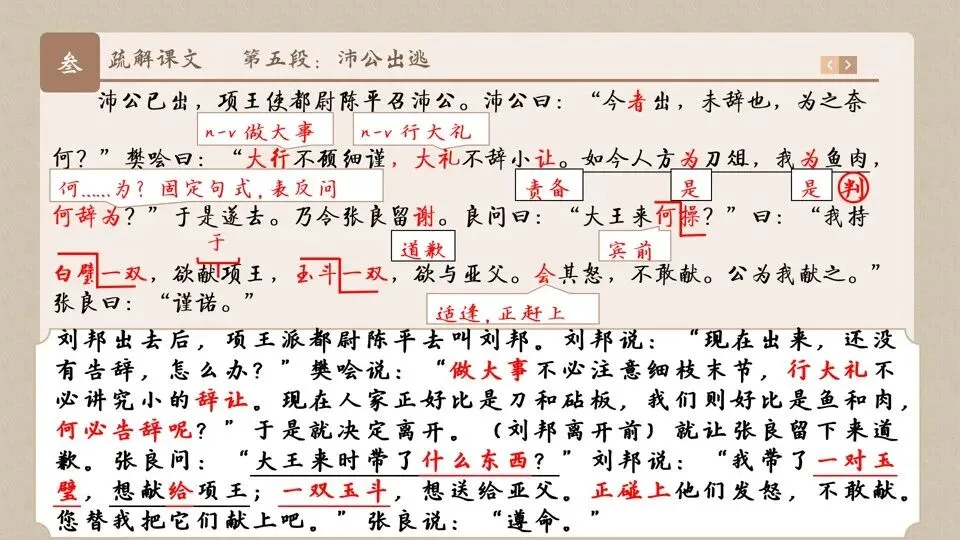 叁 疏解课文 第五段：沛公出逃
沛公已出，项王使都尉陈平召沛公。沛公曰：“今者出，未辞也，为之奈
n-v 做大事 n-v 行大礼
何？”樊哙曰：“大行不顾细谨，大礼不辞小让。如今人方为刀俎，我为鱼肉，
何……为？固定句式，表反问 责备 是 是 判
何辞为？”于是遂去。乃令张良留谢。良问曰：“大王来何操？”曰：“我持
于 道歉 宾前
白璧一双，欲献项王，玉斗一双，欲与亚父。会其怒，不敢献。公为我献之。”
张良曰：“谨诺。”
适逢，正赶上
刘邦出去后，项王派都尉陈平去叫刘邦。刘邦说：“现在出来，还没
有告辞，怎么办？”樊哙说：“做大事不必注意细枝末节，行大礼不
必讲究小的辞让。现在人家正好比是刀和砧板，我们则好比是鱼和肉，
何必告辞呢？”于是就决定离开。（刘邦离开前）就让张良留下来道
歉。张良问：“大王来时带了什么东西？”刘邦说：“我带了一对玉
璧，想献给项王；一双玉斗，想送给亚父。正碰上他们发怒，不敢献。
您替我把它们献上吧。”张良说：“遵命。”